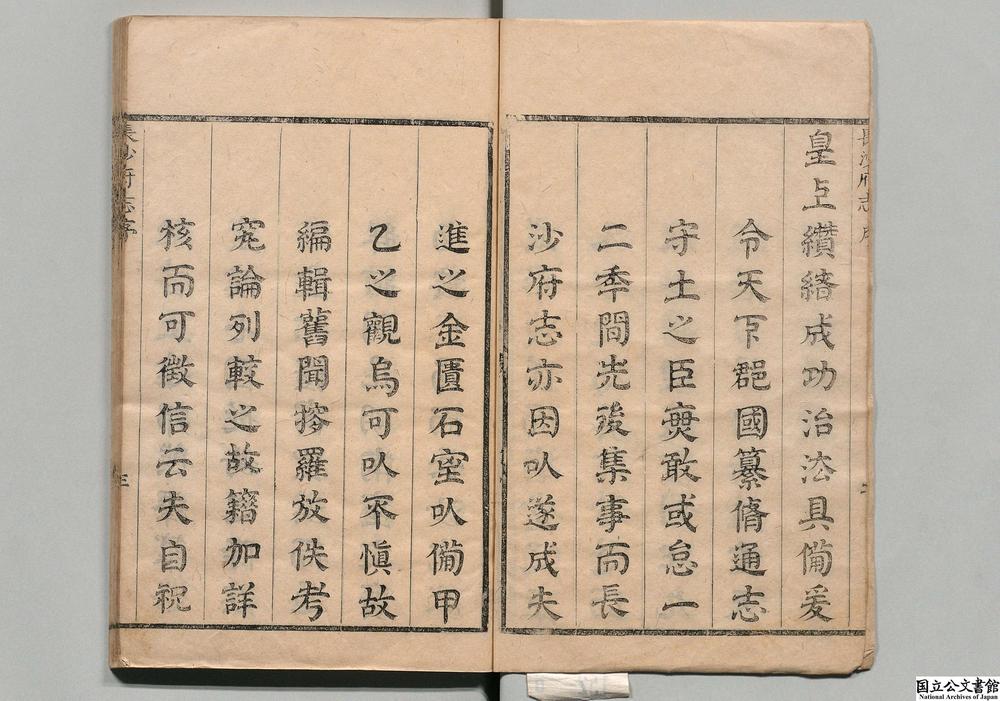 長沙府志序
皇上纘緒成功治法具備爰
令天下郡國纂脩通志
守土之臣奭敢或怠一
二年間先後集事而長
沙府志亦因以遂成夫
二
進之金匱石室以備甲
乙之觀烏可以不慎故
編輯舊聞搜羅放佚考
究論列較之故籍加詳
核而可徵信云夫自祝
長沙府志序
三
国立公文書館
National Archives of Japan